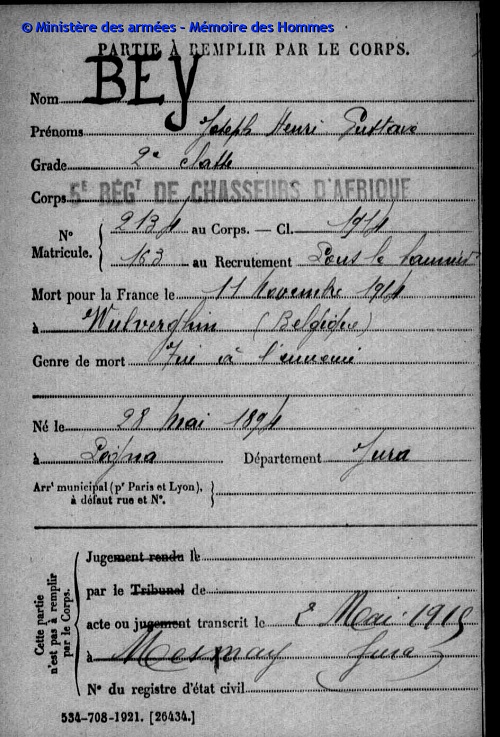 © Ministère des armées - Mémoire des Hommes
PARTIE À REMPLIR PAR LE CORPS.
Nom BEY
Prénoms Joseph Henri Gustave
Grade 2e classe
Corps 5E RÉGT DE CHASSEURS D'AFRIQUE
No Matricule. { 2134 au Corps. — Cl. 1914
163 au Recrutement Lons le Saunier
Mort pour la France le 11 Novembre 1914
à Wulverghin (Belgique)
Genre de mort Tué à l'ennemi
Né le 28 Mai 1894
à Département Jura
Arrt municipal (pr Paris et Lyon), à défaut rue et No. }
Cette partie n'est pas à remplir par le Corps. {
Jugement rendu le
par le Tribunal de
acte ou jugement transcrit le 2 Mai 1915
à Mesnay Jura
No du registre d'état civil
534-708-1921. [26434.]